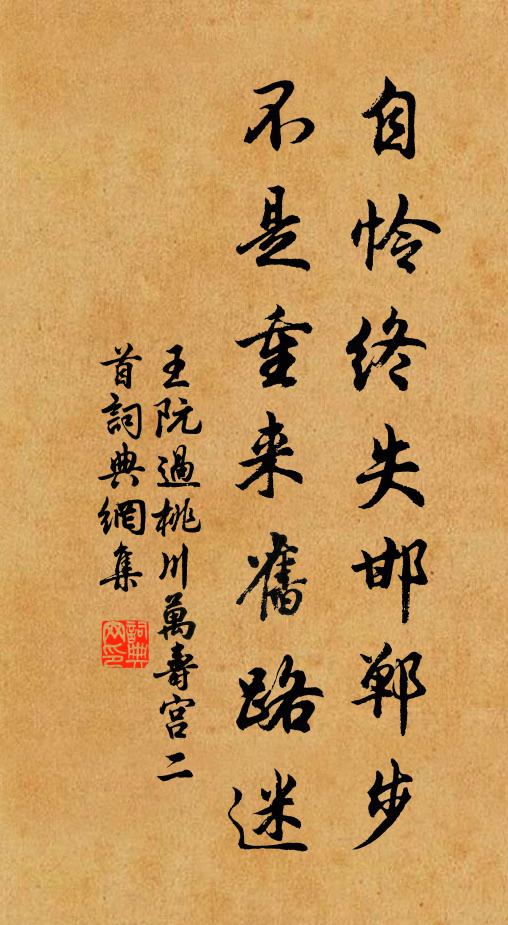 自怜终失邯郸步
不是重来舊路迷
王阮過桃川萬壽宫二
首詞典網集
詞典
网印